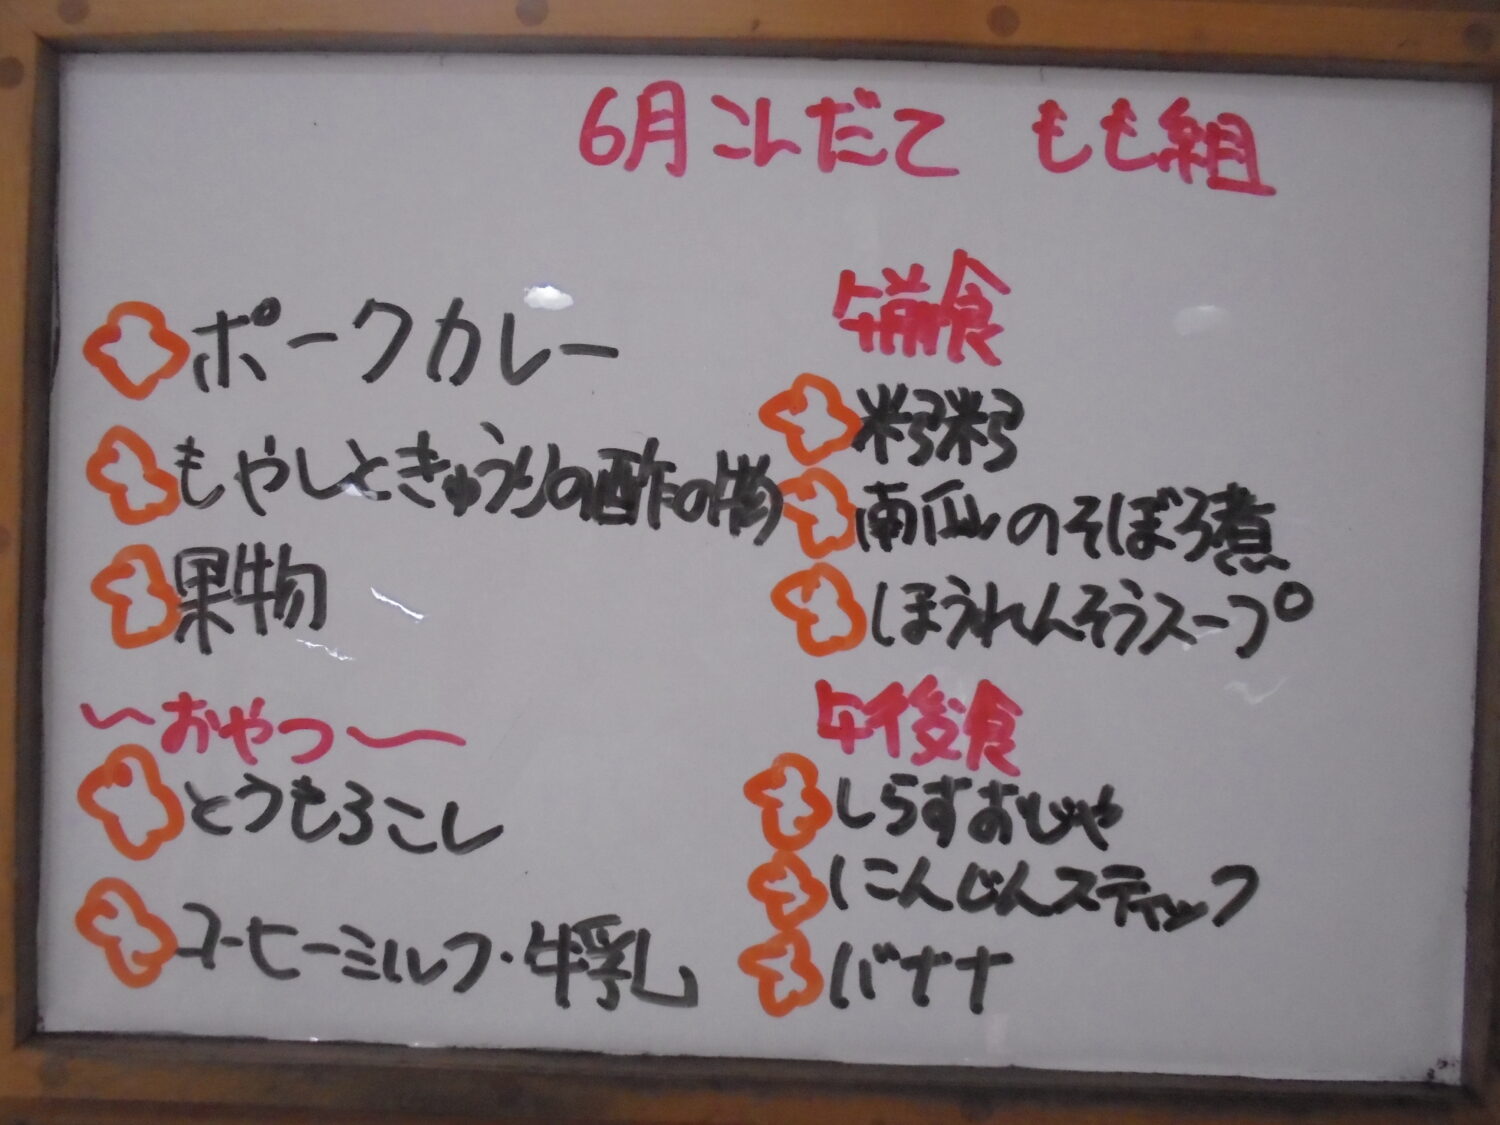 6月こんだて もも組
ポークカレー
もやしときゅうりの酢の物
果物
〜おやつ〜
とうもろこし
コーヒーミルク・牛乳
午前食
南瓜のそぼろ煮
ほうれんそうスープ
午後食
しらすおじや
にんじんスティック
バナナ